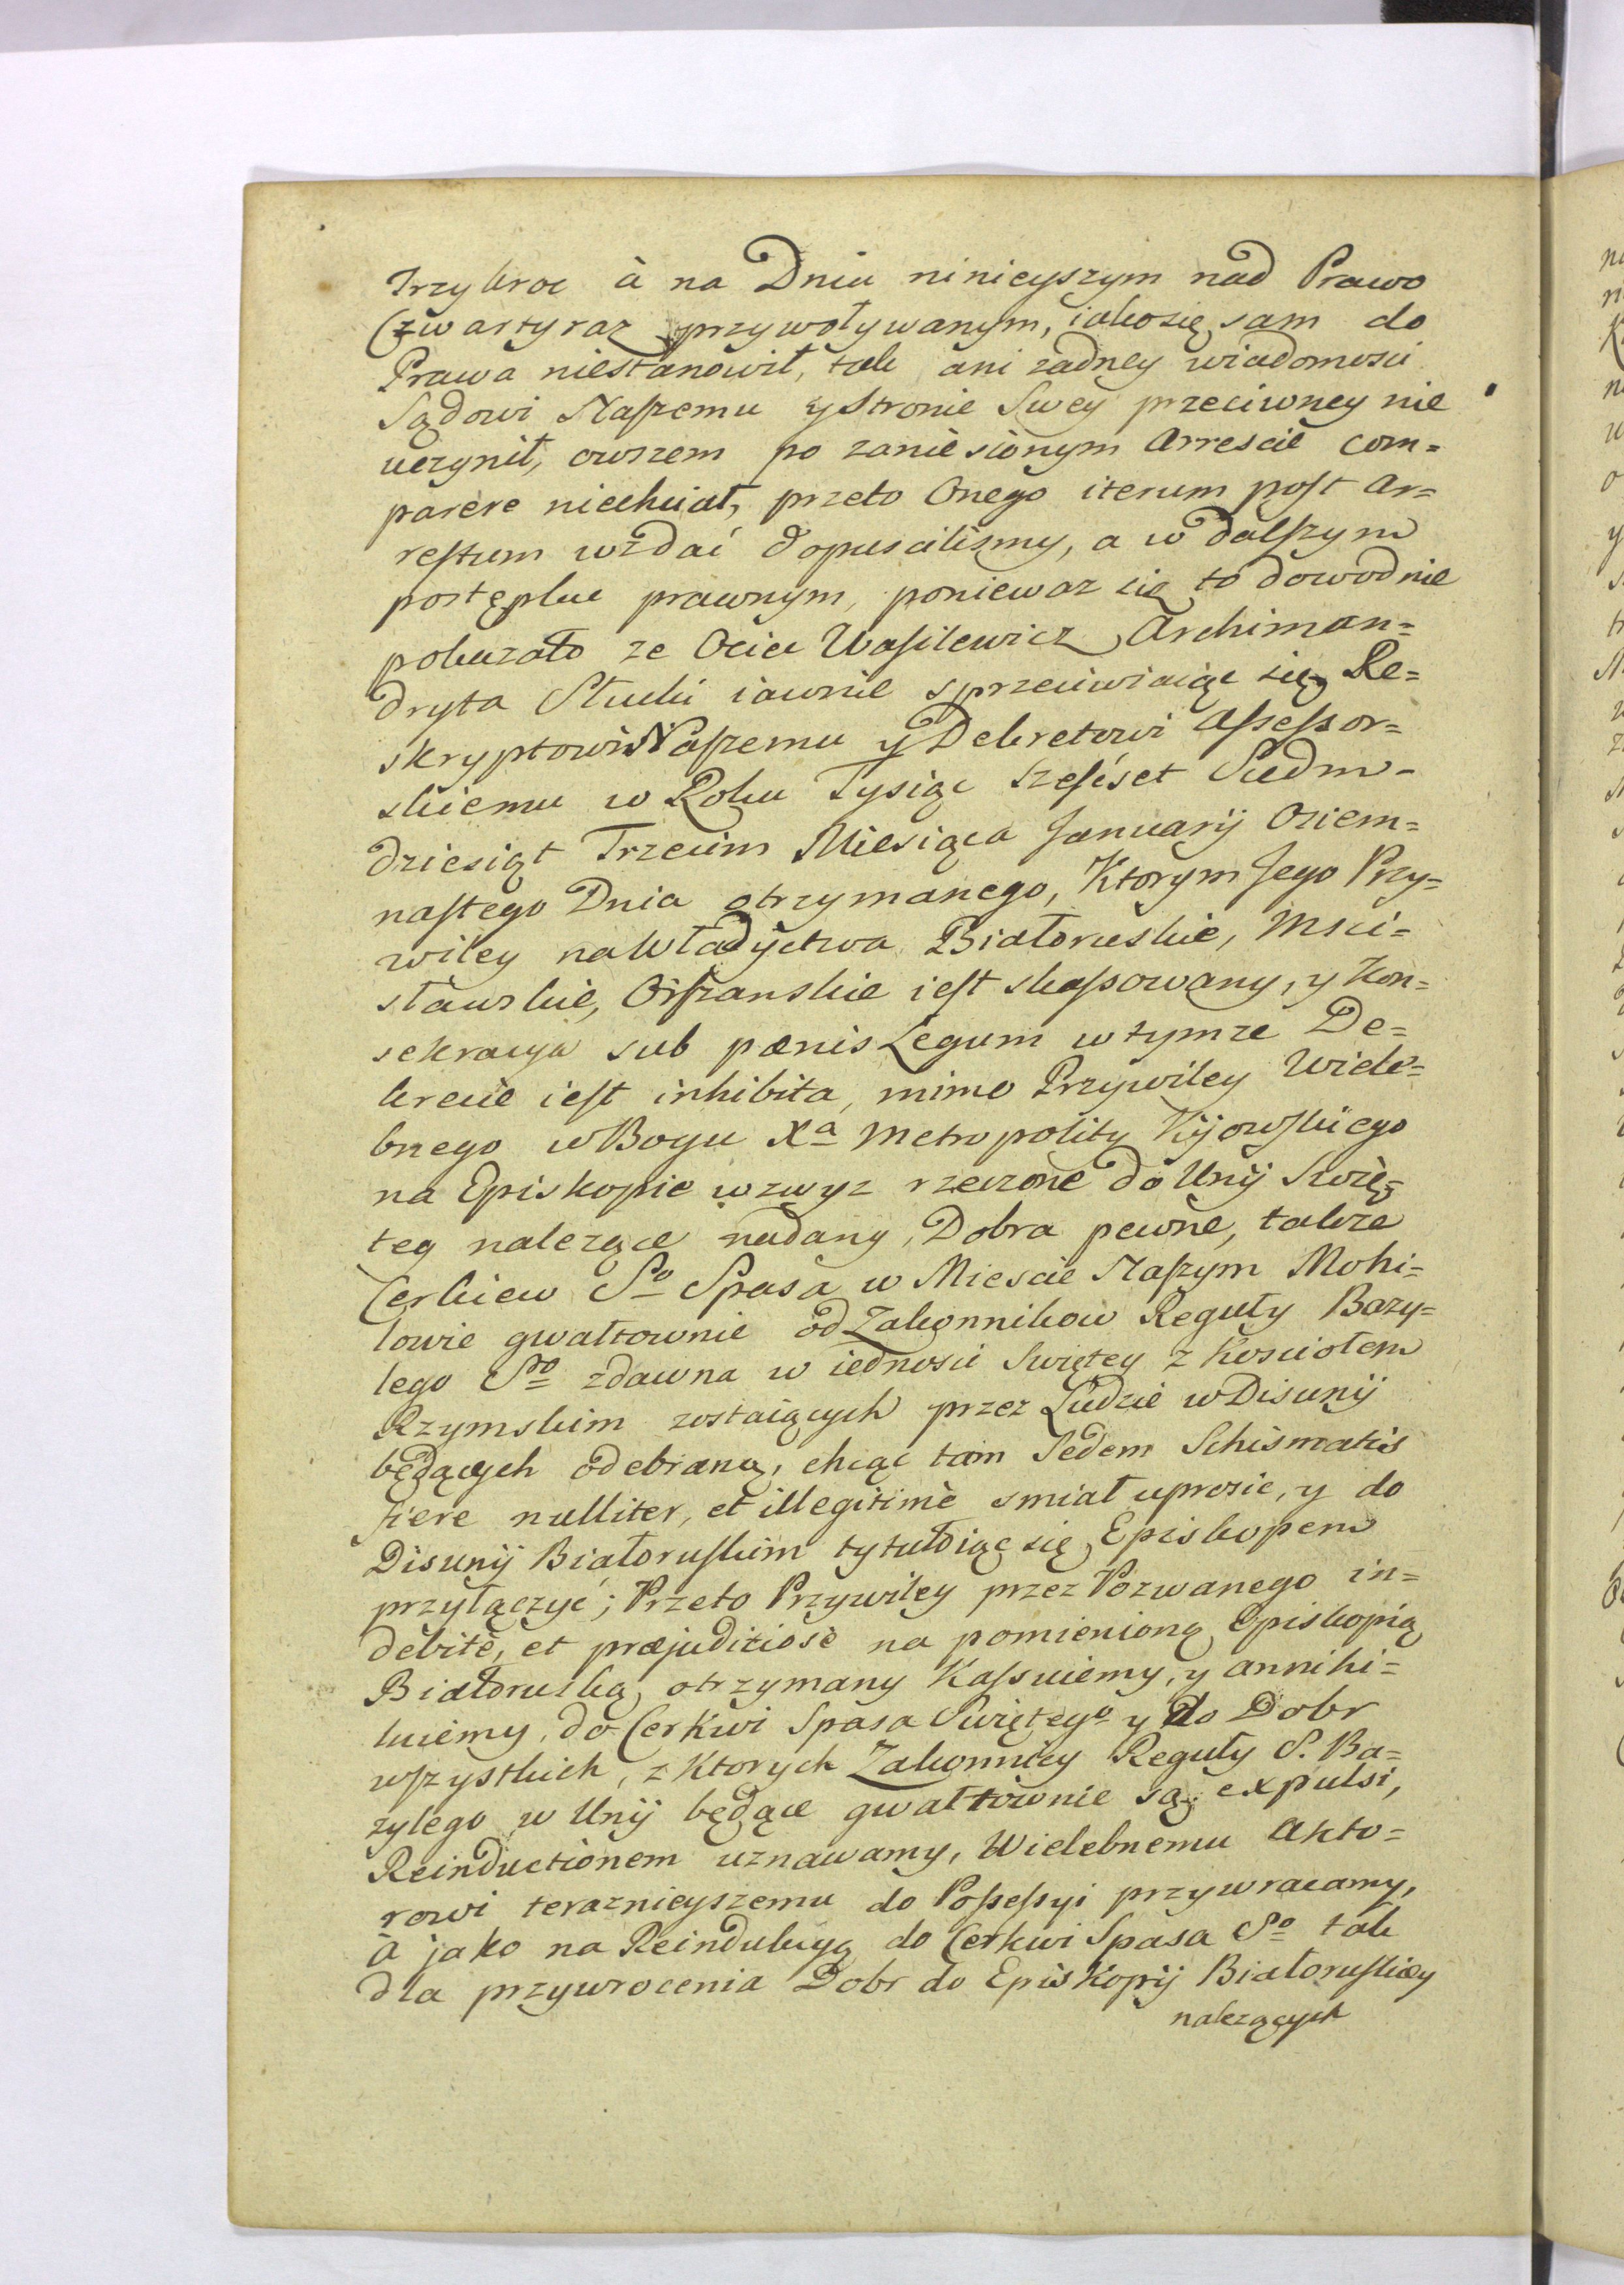 Trzykroc à na Dniu ninieyszym nad Prawo
Czwarty raz przywoływanym, iako się sam do
Prawa niestanowił, tak ani zadney wiadomosci
Sądowi Naszemu y Stronie Swey przeciwney nie
uczynił, owszem po zaniesionym Arrescie com=
parere niechciał, przeto Onego iterum post Ar=
restum wzdać dopuscilismy, a w dalszym
postępku prawnym, poniewaz się to dowodnie
pokazało ze Ociec Wasilewicz Archiman=
dryta Słucki iawnie sprzeciwiaiąc się Re=
skryptowi Naszemu y Dekretowi Assessor=
skiemu w Roku Tysiąc Szescset Siedm=
dziesiąt Trzecim Miesiąca Januarij Osiem=
nastego Dnia otrzymanego, Ktorym Jego Przy=
wiley na Władyctwa Białoruskie, Msci=
sławskie, Orszanskie iest skassowany, y Kon=
sekracya sub pænis Legum w tymze De=
krecie iest inhibita, mimo Przywiley Wiele=
bnego w Bogu Xa Metropolity Kijowskiego
na Episkopie wzwyz rzeczone do Unij Swię=
tey nalezące nadany, Dobra pewne, takze
Cerkiew So Spasa w Miescie Naszym Mohi=
lowie gwałtownie od Zakonnikow Reguły Bazy=
lego So zdawna w iednosci Swiętey z Kosciołem
Rzymskim zostaiących przez Ludzie w Disunij
będących odebraną, chcąc tam Sedem Schismatis
fiere nulliter, et illegitimè smiał uprosic, y do
Disunij Białoruskim tytułuiąc się Episkopem
przyłączyć; Przeto Przywiley przez Pozwanego in=
debitè, et præjudiciosè na pomienioną Episkopią
Białoruską otrzymany Kassuiemy, y annihi=
luiemy, do Cerkwi Spasa Swiętego y do Dobr
wszystkich, z Ktorych Zakonnicy Reguły S. Ba=
zylego w Unij będące gwałtownie są expulsi,
Reinductionem uznawamy, Wielebnemu Akto=
rowi teraznieyszemu do Possessyi przywracamy,
à jako na Reindukcyą do Cerkwi Spasa So tak
dla przywrocenia Dobr do Episkopij Białoruskiey
nalezących